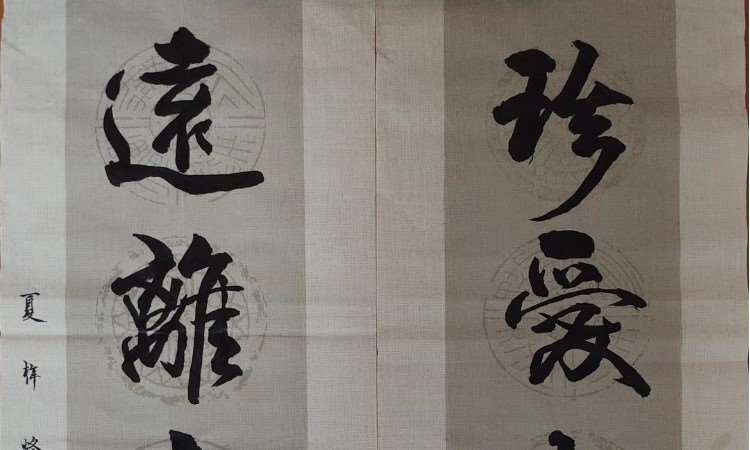 珍愛
遠離
夏梓